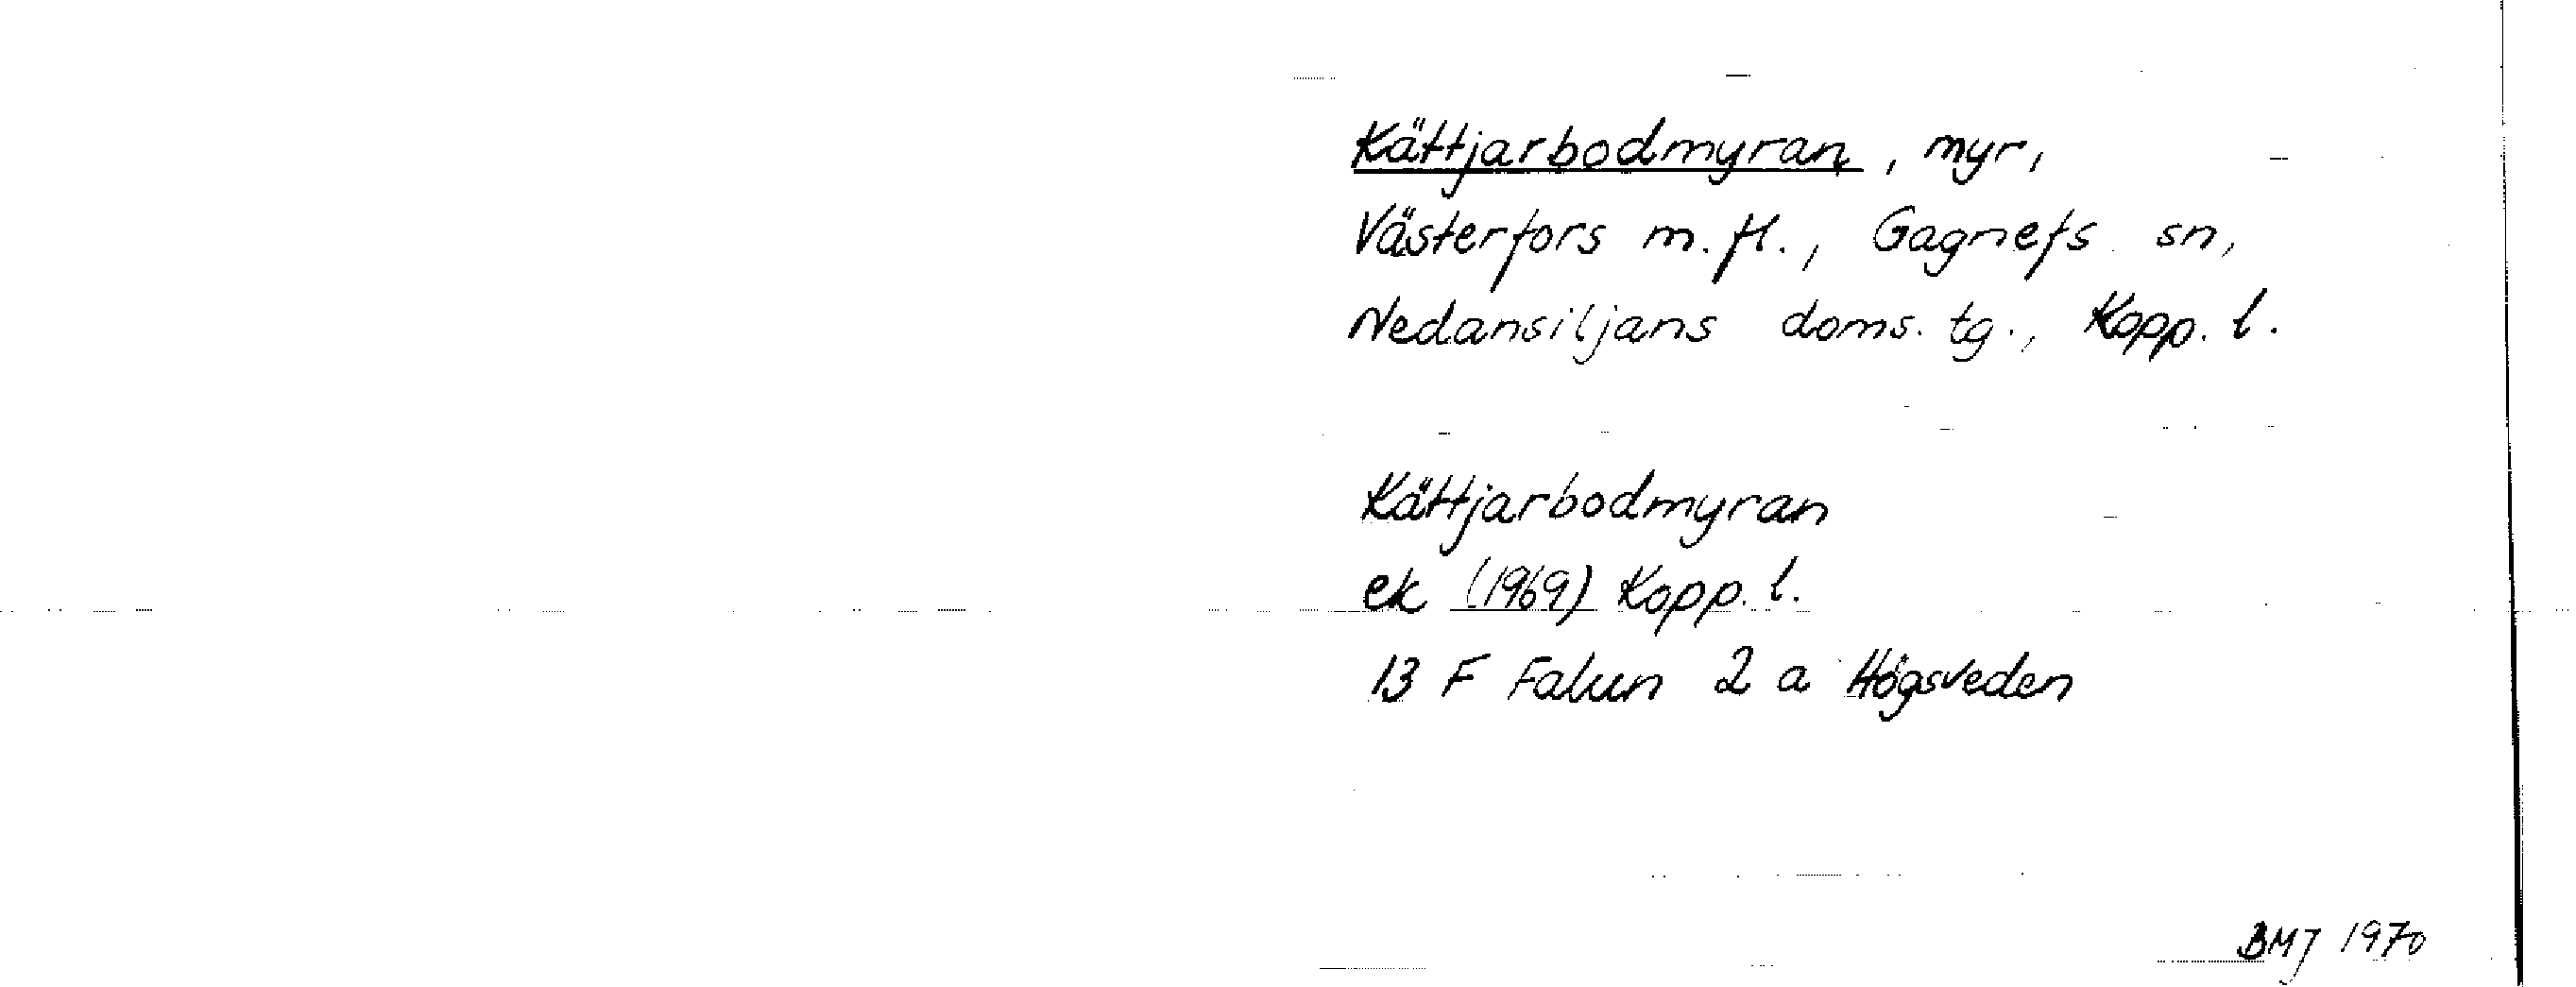 Kättjarbodmyran, myr,
Västerfors m. fl., Gagnefs sn,
Nedansiljans doms. tg., Kopp. l.
Kättjarbodmyran
ek (1969) Kopp. l.
13 F Falun 2 a Högsveden
BMJ 1970